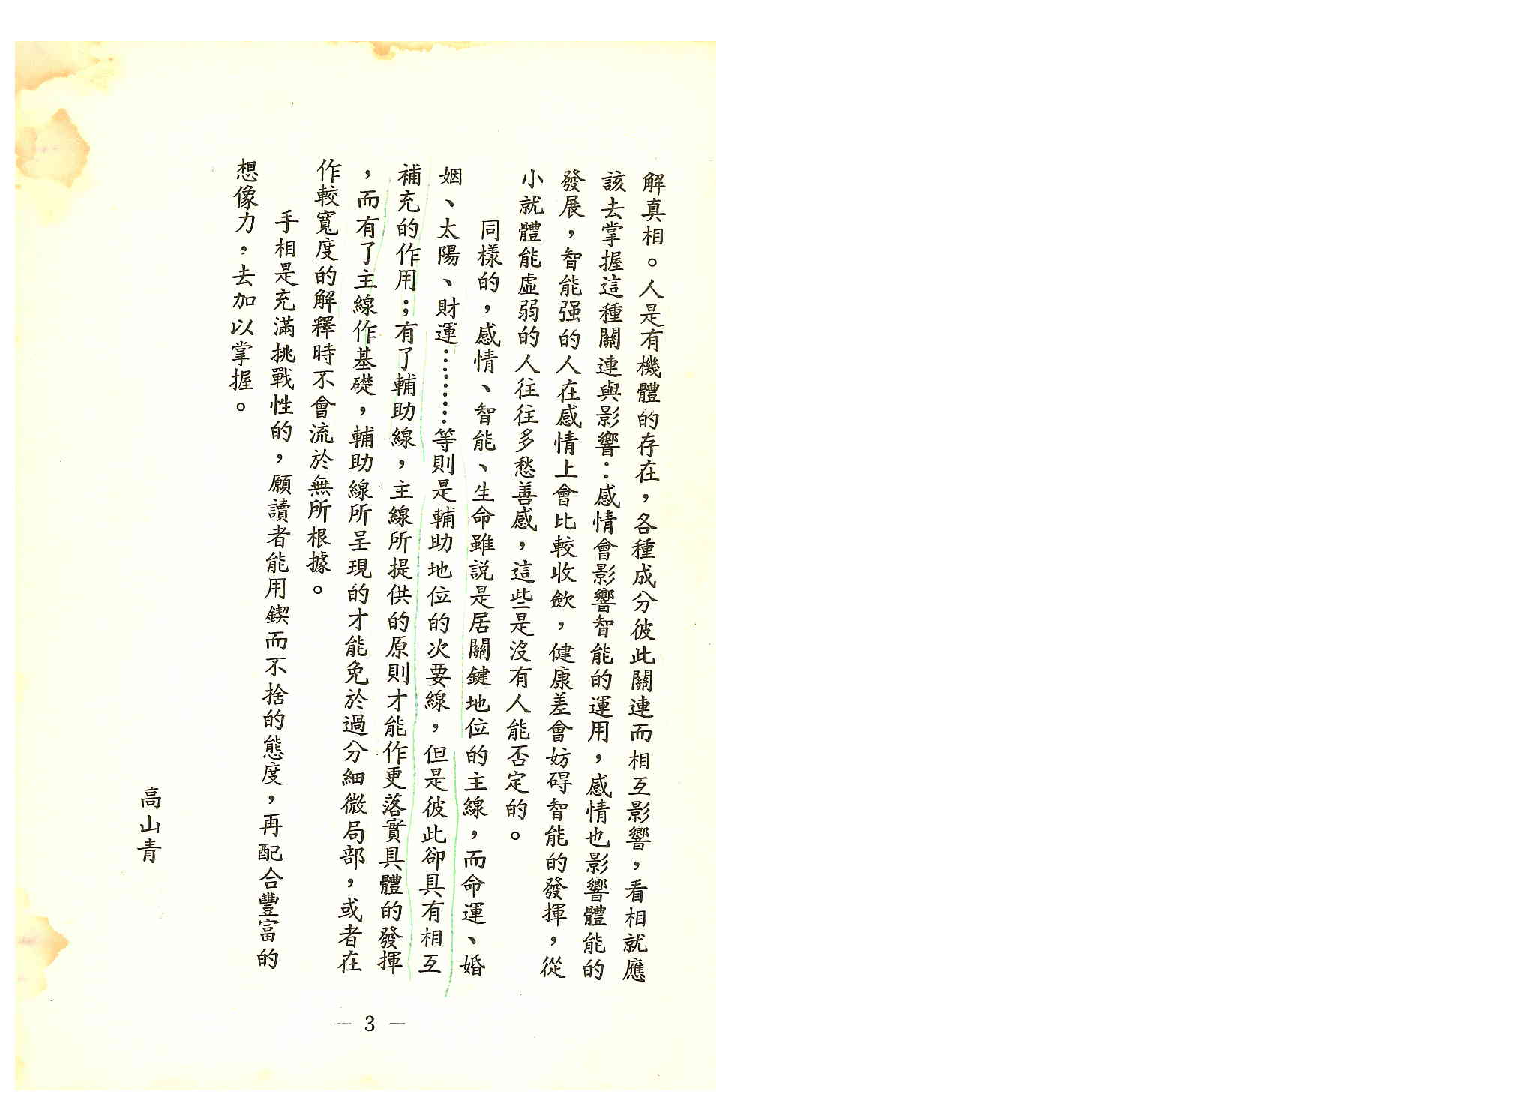 解真相。人是有機體的存在，各種成分彼此關連而相互影響，看相就應
該去掌握這種關連與影響：感情會影響智能的運用，感情也影響體能的
發展，智能强的人在感情上會比較收歛，健康差會妨碍智能的發揮，從
小就體能虛弱的人往往多愁善感，這些是沒有人能否定的。
同樣的，感情、智能、生命雖説是居關鍵地位的主線，而命運、婚
姻、太陽、財運………等則是輔助地位的次要線，但是彼此卻具有相互
補充的作用；有了輔助線，主線所提供的原則才能作更落實具體的發揮
，而有了主線作基礎，輔助線所呈現的才能免於過分細微局部，或者在
作較寬度的解釋時不會流於無所根據。
手相是充滿挑戰性的，願讀者能用鍥而不捨的態度，再配合豐富的
想像力，去加以掌握。
高山青
— 3 —